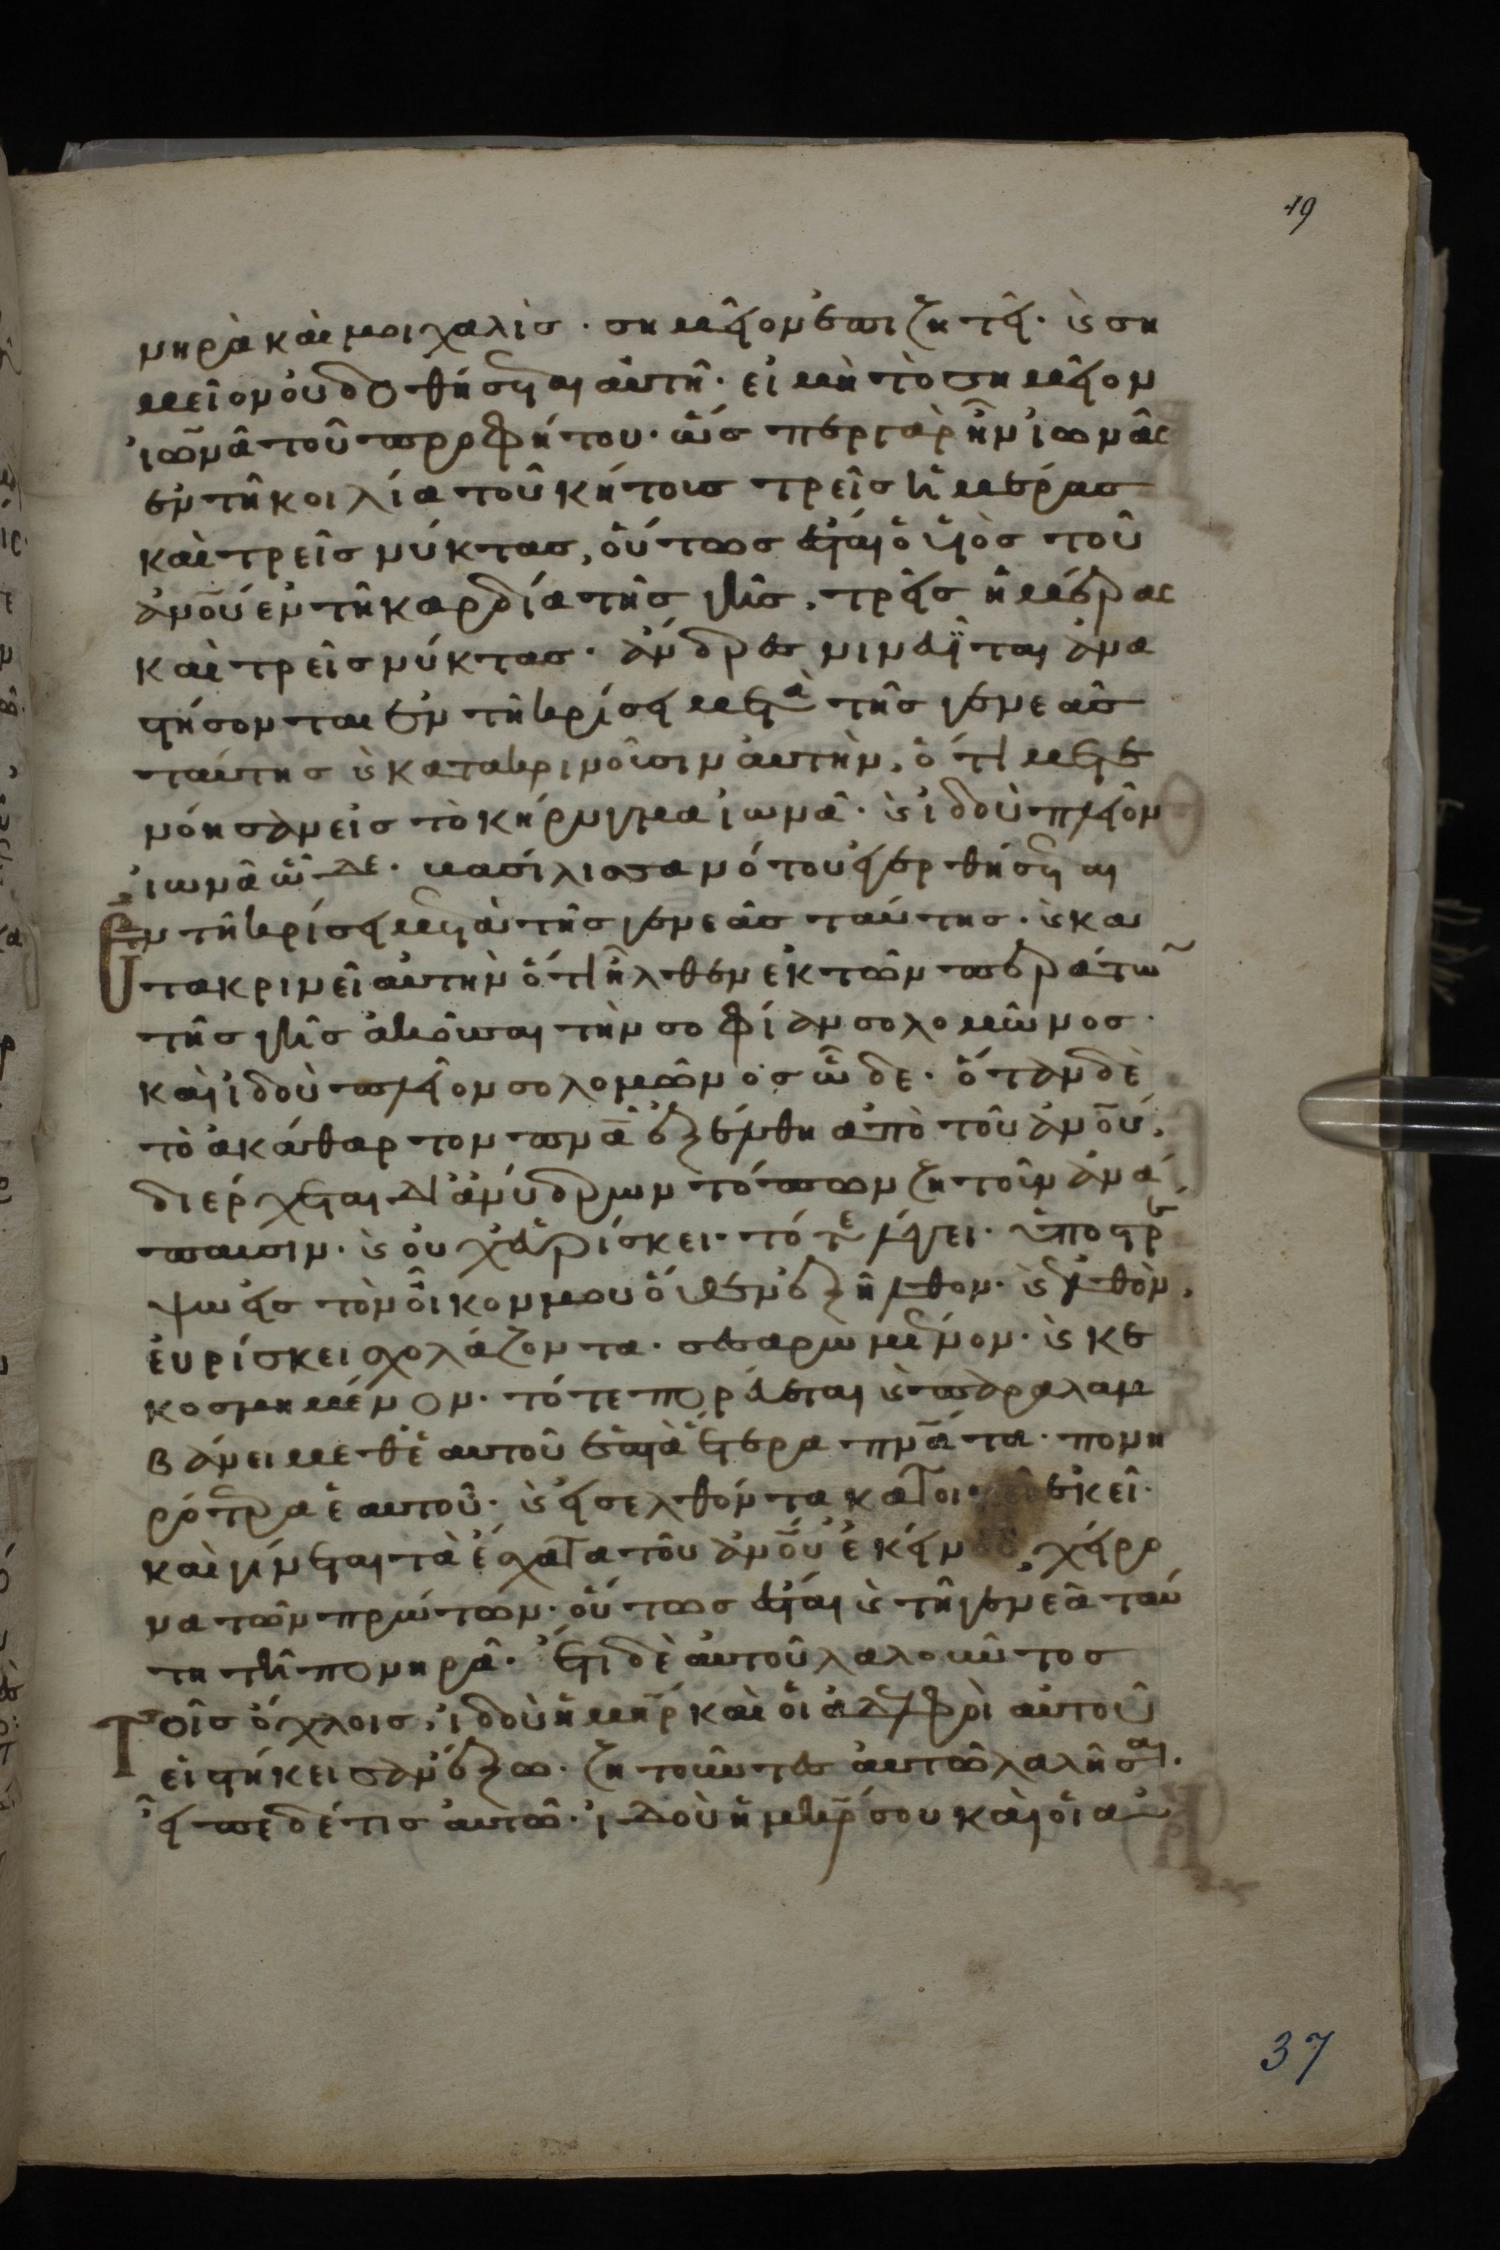 19
νηρὰ καὶ μοιχαλὶσ· σημεῖον ἐπιζητεῖ· κ̀ ση
μεῖον ὀυ δοθήσεται ἀυτῆ· εἰ μὴ τὸ σημεῖον
ἰωνᾶ τοῦ προφήτου· ὥσπερ γὰρ ἦν ἰωνᾶσ
ἐν τῆ κοιλία τοῦ κήτουσ τρεῖσ ἡμέρασ
καὶ τρεῖσ νύκτασ, ὅυτωσ ἔσται ὁ υἱὸσ τοῦ
ἀν̅ο̅υ̅ ἐν τῆ καρδία τῆσ γῆσ, τρεῖσ ἡμέρασ
καὶ τρεῖσ νύκτασ· ἄνδρεσ νινευῖται ἀνα
στήσονται ἐν τῆ κρίσει μετὰ τῆσ γενεᾶσ
ταύτησ κ̀ κατακρινοῦσιν ἀυτὴν, ὅτι μετε
νόησαν εἰσ τὸ κήρυγμα ἰωνᾶ· κ̀ ἰδοὺ πλεῖον
ἰωνᾶ ὧδε· βασίλισσα νότου ἐγερθήσεται
ἐν τῆ κρίσει μετὰ τῆσ γενεᾶσ ταύτησ· κ̀ κα
τακρινεῖ ἀυτὴν ὅτι ἦλθεν ἐκ τῶν περάτω̅
τῆσ γῆσ ἀκοῦσαι τὴν σοφίαν σολομῶνοσ·
καὶ ἰδοὺ πλεῖον σολομῶνοσ ὧδε· ὅταν δὲ
τὸ ἀκάθαρτον πν̅α̅ ἐξέλθη ἀπὸ τοῦ ἀν̅ο̅υ̅,
διέρχεται δι ἀνύδρων τόπων ζητοῦν ἀνά
παυσιν· κ̀ ὀυχ ἑυρίσκει· τότε λέγει· ὑποστρέ
ψω εἰσ τὸν οἶκον μου ὅθεν ἐξῆλθον· κ̀ ἐλθὸν,
ἑυρίσκει σχολάζοντα· σεσαρωμένον· κ̀ κε
κοσμημένον· τότε πορέυεται κ̀ παραλαμ
βάνει μεθ ἑαυτοῦ ἑπτὰ ἕτερα πν̅α̅τα· πονη
ρότερα ἑαυτοῦ· κ̀ εἰσελθόντα κατοικεῖ ἐκεῖ·
καὶ γίνεται τὰ ἔσχατα τοῦ ἀν̅ο̅υ̅ ἐκείνου, χείρο
να τῶν πρώτων· ὅυτωσ ἔσται κ̀ τῆ γενεᾶ ταύ
τη τῆ πονηρᾶ· ἔτι δὲ ἀυτοῦ λαλοῦντοσ
τοῖσ ὄχλοισ, ἰδοὺ ἡ μη̅ρ̅ καὶ ὁι ἀδελφοὶ ἀυτοῦ
εἱστήκεισαν ἔξω· ζητοῦντεσ ἀυτῶ λαλῆσαι·
εἶπε δέ τισ ἀυτῶ· ἰδοὺ ἡ μη̅ρ̅ σου καὶ ὁι ἀδ
37